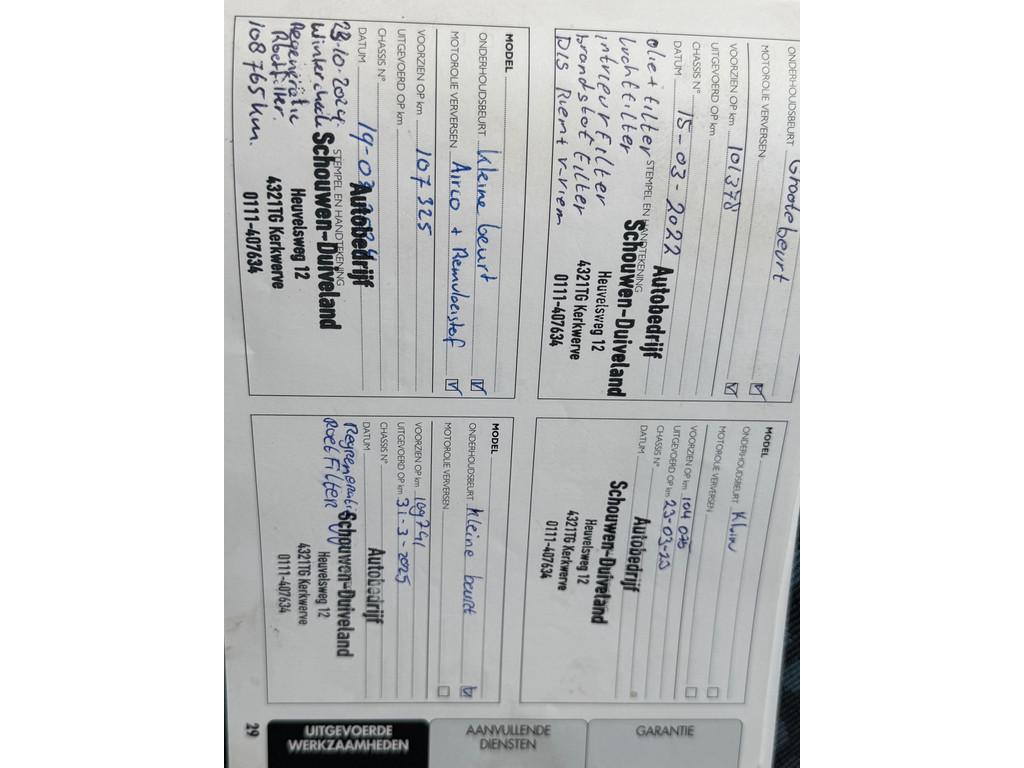 ONDERHOUDSBEURT Grote beurt
MOTOROLIE VERVERSEN
VOORZIEN OP km 101378
UITGEVOERD OP km
CHASSIS N°
DATUM 15-03-2022
STEMPEL EN HANDTEKENING
olie + filter
luchtfilter
intrieurfilter
brandstof filter
Dis Riem + v-riem
Autobedrijf
Schouwen-Duiveland
Heuvelsweg 12
4321TG Kerkwerve
0111-407634
MODEL
ONDERHOUDSBEURT Klein
MOTOROLIE VERVERSEN
VOORZIEN OP km 104075
UITGEVOERD OP km 23-03-23
CHASSIS N°
DATUM
Autobedrijf
Schouwen-Duiveland
Heuvelsweg 12
4321TG Kerkwerve
0111-407634
MODEL
ONDERHOUDSBEURT kleine beurt
MOTOROLIE VERVERSEN Airco + Remvloeistof
VOORZIEN OP km 107325
UITGEVOERD OP km
CHASSIS N°
DATUM
STEMPEL EN HANDTEKENING
23-10-2024.
Wintercheck
Regeneratie
Roetfilter.
108765 km.
Autobedrijf
Schouwen-Duiveland
Heuvelsweg 12
4321TG Kerkwerve
0111-407634
MODEL
ONDERHOUDSBEURT kleine beurt
MOTOROLIE VERVERSEN
VOORZIEN OP km 109741
UITGEVOERD OP km 31-3-2025
CHASSIS N°
DATUM
Roetfilter
Autobedrijf
Schouwen-Duiveland
Heuvelsweg 12
4321TG Kerkwerve
0111-407634
GARANTIE
AANVULLENDE
DIENSTEN
UITGEVOERDE
WERKZAAMHEDEN
29